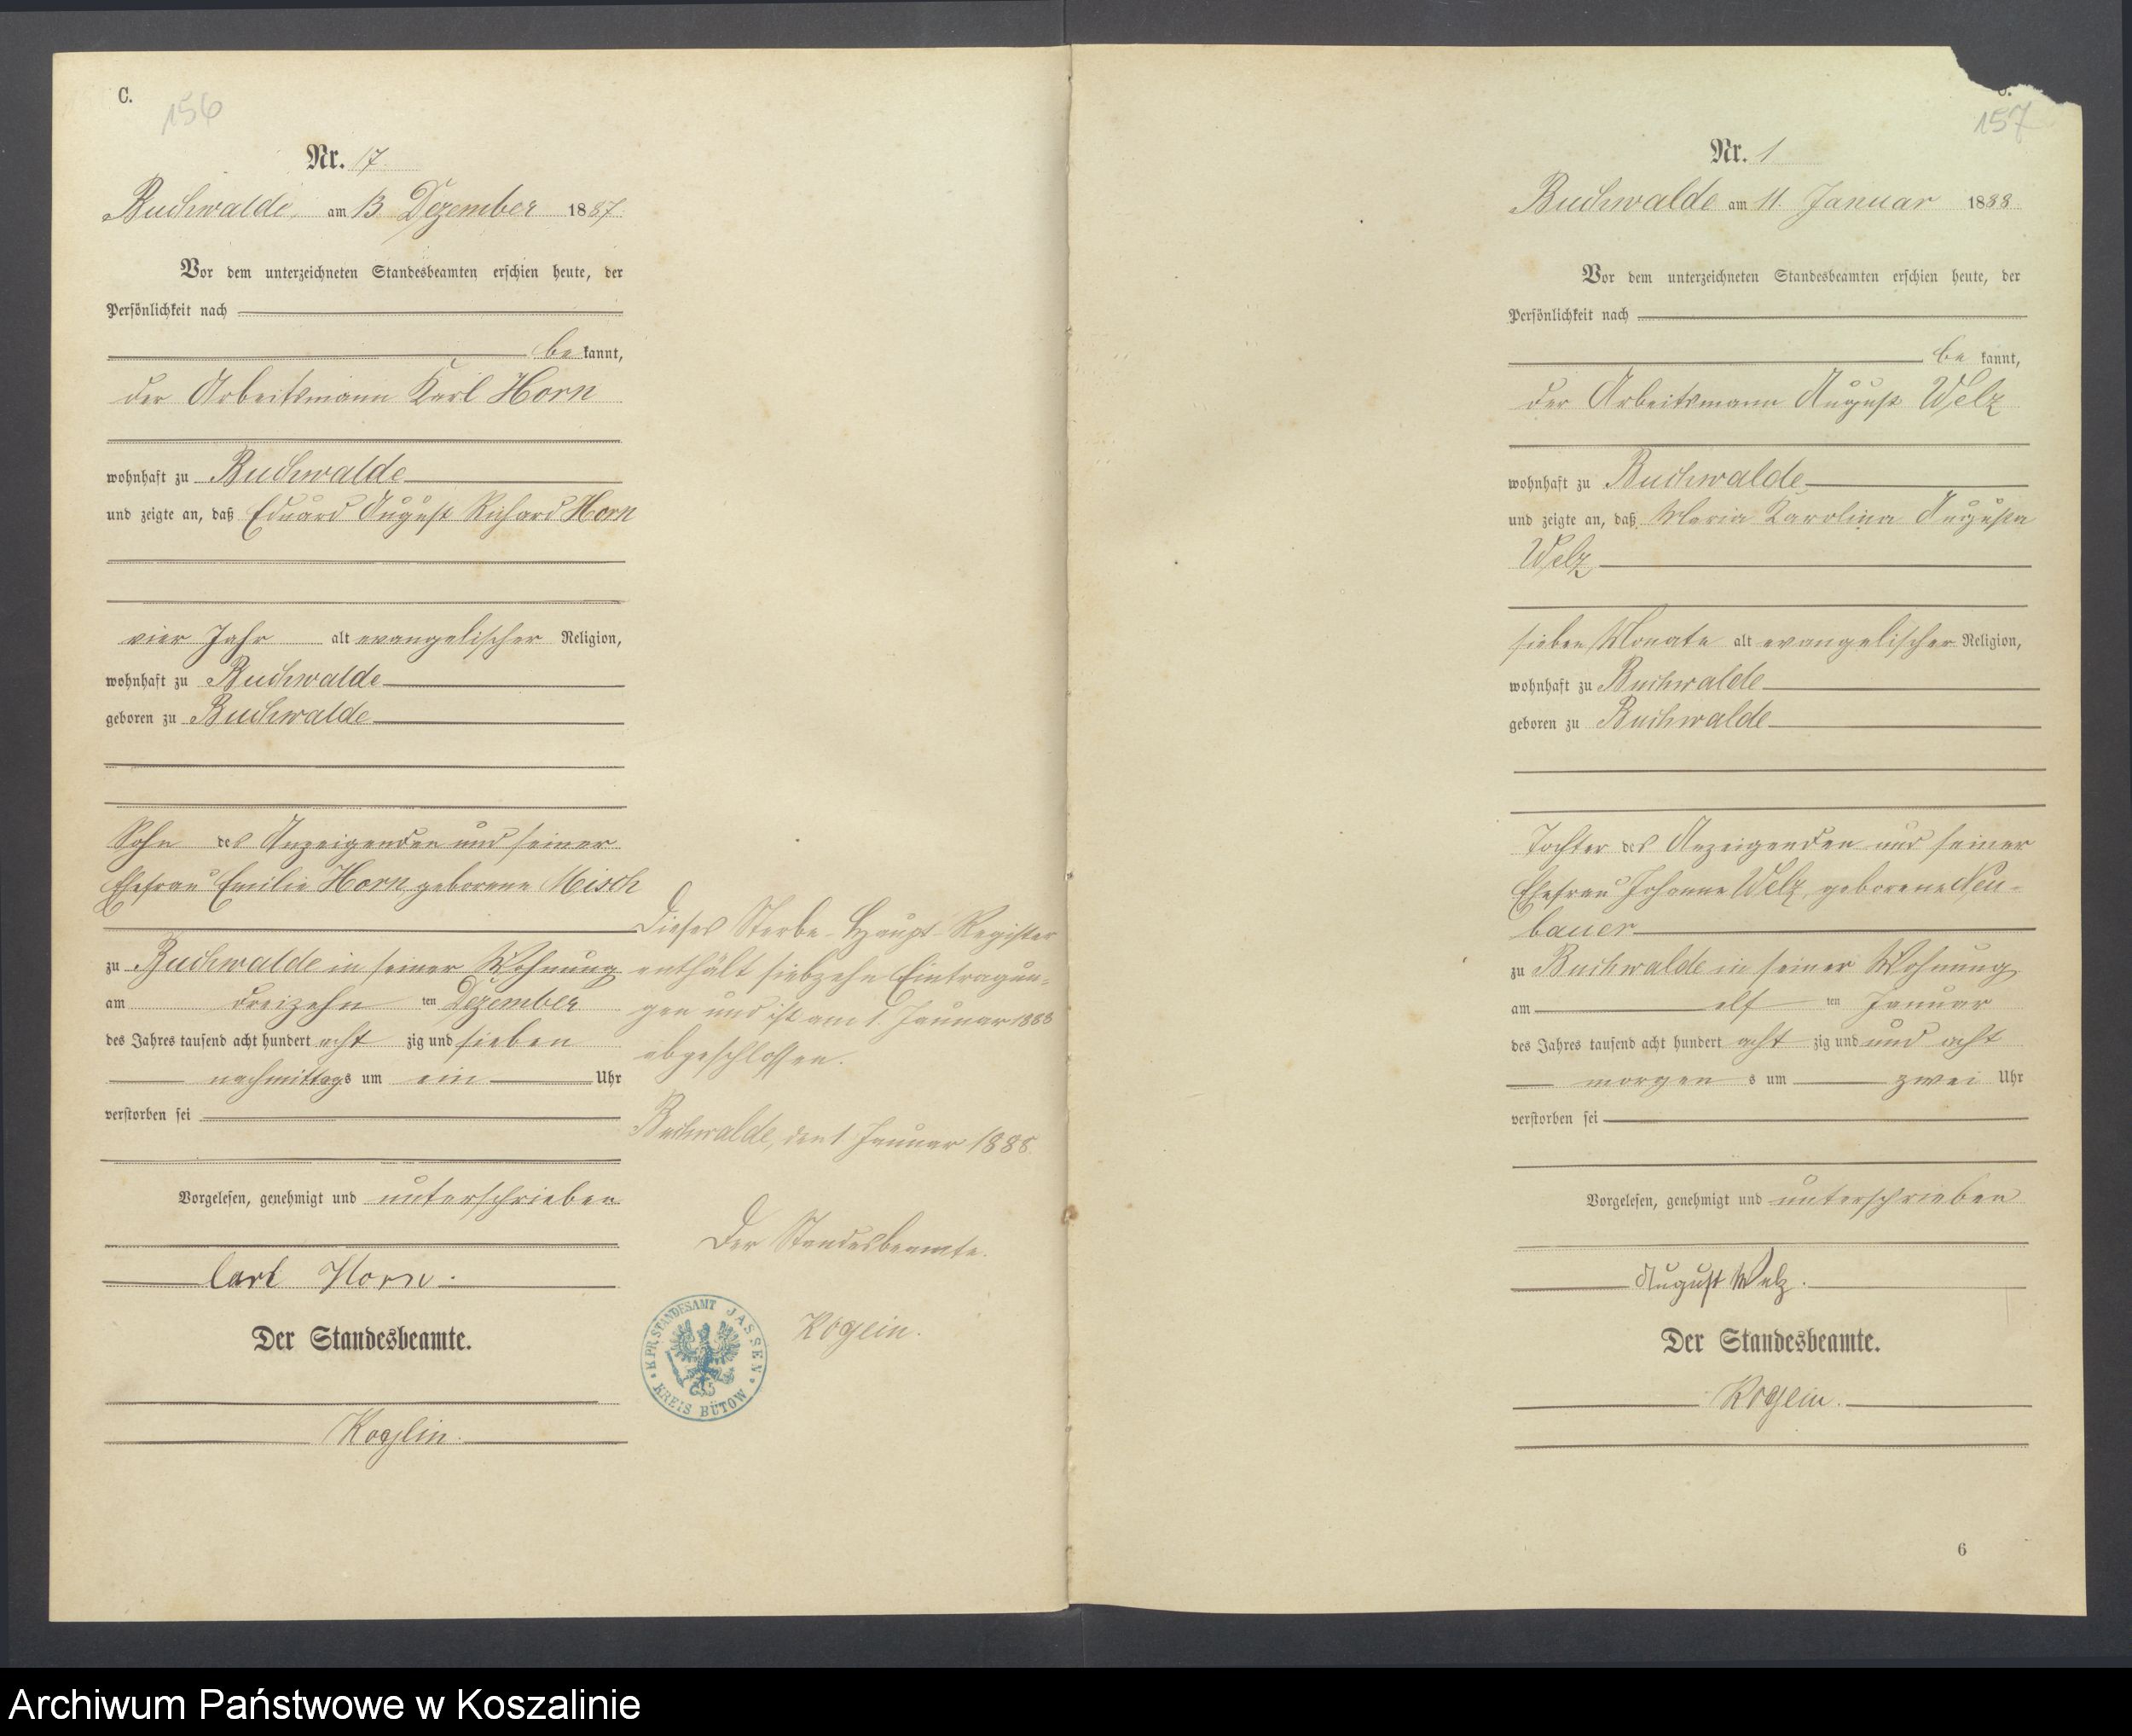 C.
156
Nr. 17
Buchwalde, am 13. Dezember 1887.
Vor dem unterzeichneten Standesbeamten erschien heute, der
Persönlichkeit nach
be kannt,
der Arbeitsmann Karl Horn
wohnhaft zu Buchwalde
und zeigte an, daß Eduard August Richard Horn
vier Jahr alt evangelischer Religion,
wohnhaft zu Buchwalde
geboren zu Buchwalde
Sohn des Anzeigenden und seiner
Ehefrau Emilie Horn geborene Misch
zu Buchwalde in seiner Wohnung
am dreizehn ten Dezember
des Jahres tausend acht hundert acht zig und sieben
nachmittags um ein Uhr
verstorben sei
Vorgelesen, genehmigt und unterschrieben
Carl Horn.
Der Standesbeamte.
Koglin.
Dieses Sterbe-Haupt-Register
enthält siebzehn Eintragun-
gen und ist am 1. Januar 1888
abgeschlossen.
Buchwalde, den 1 Januar 1888.
Der Standesbeamte.
Koglin.
K. PR. STANDESAMT JASSEN
KREIS BÜTOW
157
Nr. 1
Buchwalde am 11. Januar 1888
Vor dem unterzeichneten Standesbeamten erschien heute, der
Persönlichkeit nach
be kannt,
der Arbeitsmann August Welz
wohnhaft zu Buchwalde
und zeigte an, daß Maria Karolina Augusta
Welz
sieben Monate alt evangelischer Religion,
wohnhaft zu Buchwalde
geboren zu Buchwalde
Tochter des Anzeigenden und seiner
Ehefrau Johanne Welz, geborene Neu-
bauer
zu Buchwalde in seiner Wohnung
am elf ten Januar
des Jahres tausend acht hundert acht zig und und acht
morgen s um zwei Uhr
verstorben sei
Vorgelesen, genehmigt und unterschrieben
August Welz.
Der Standesbeamte.
Koglin.
6
Archiwum Państwowe w Koszalinie